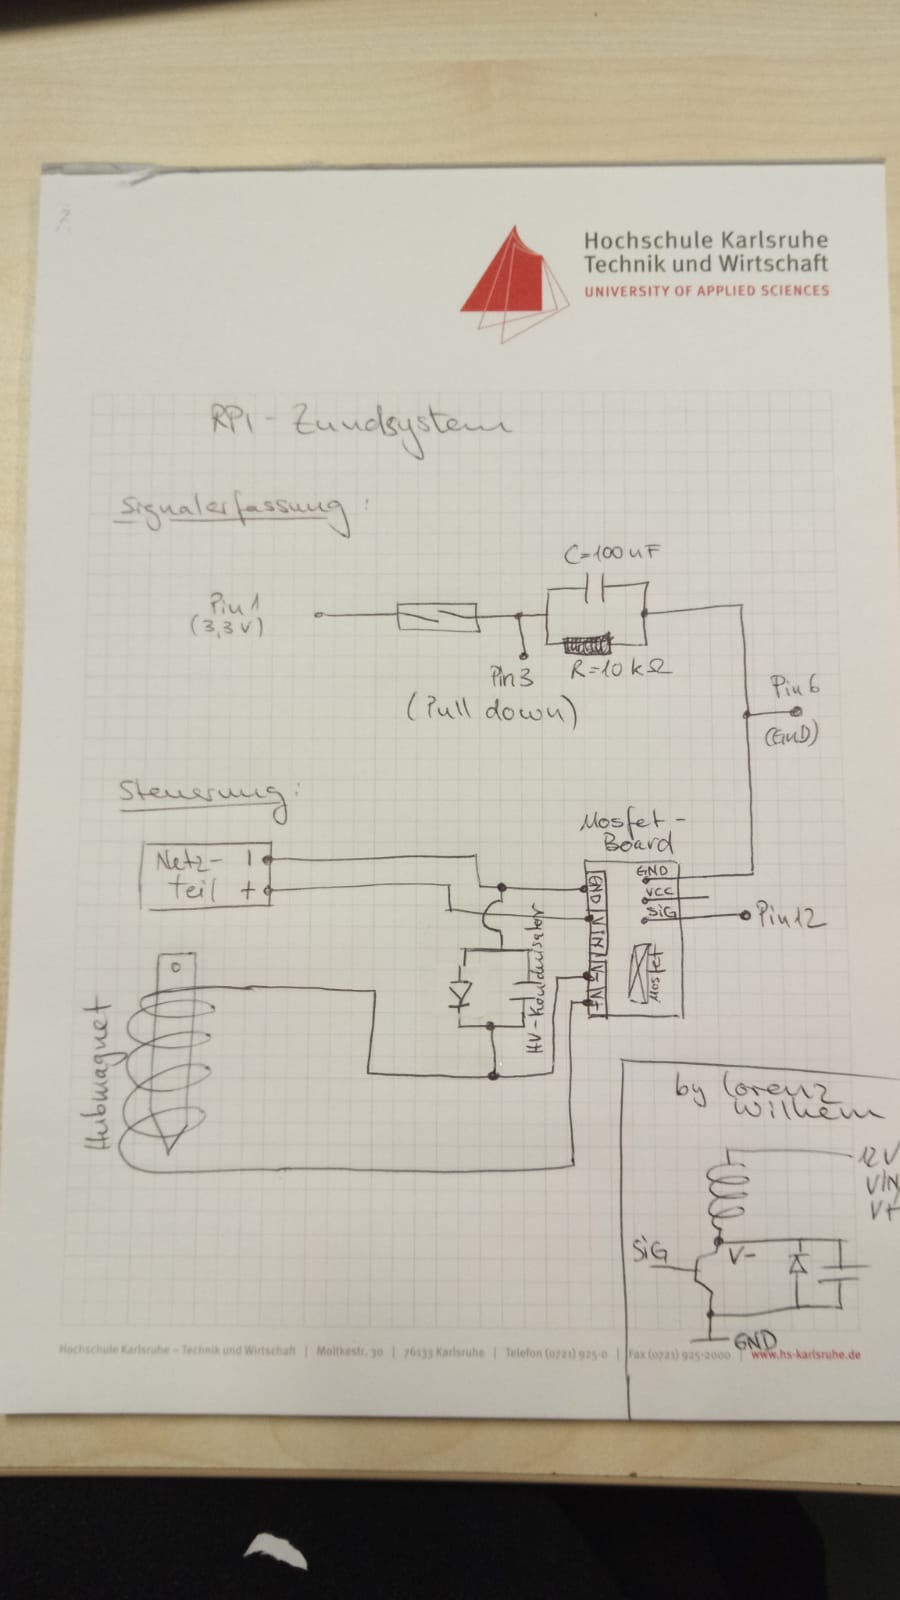 Hochschule Karlsruhe
Technik und Wirtschaft
UNIVERSITY OF APPLIED SCIENCES
RPI - Zündsystem
Signalerfassung:
C=100nF
Pin 1
(3,3V)
Pin3
R=10kΩ
(Pull down)
Pin 6
(GND)
Steuerung:
Mosfet-
Board
Netz- -
teil +
GND
VIN
V-
V+
GND
VCC
SiG
Pin12
Mosfet
HV-Kondensator
Hubmagnet
by Lorenz
Wilhelm
12V
VIN
V+
SiG
V-
GND
Hochschule Karlsruhe – Technik und Wirtschaft | Moltkestr. 30 | 76133 Karlsruhe | Telefon (0721) 925-0 | Fax (0721) 925-2000 | www.hs-karlsruhe.de